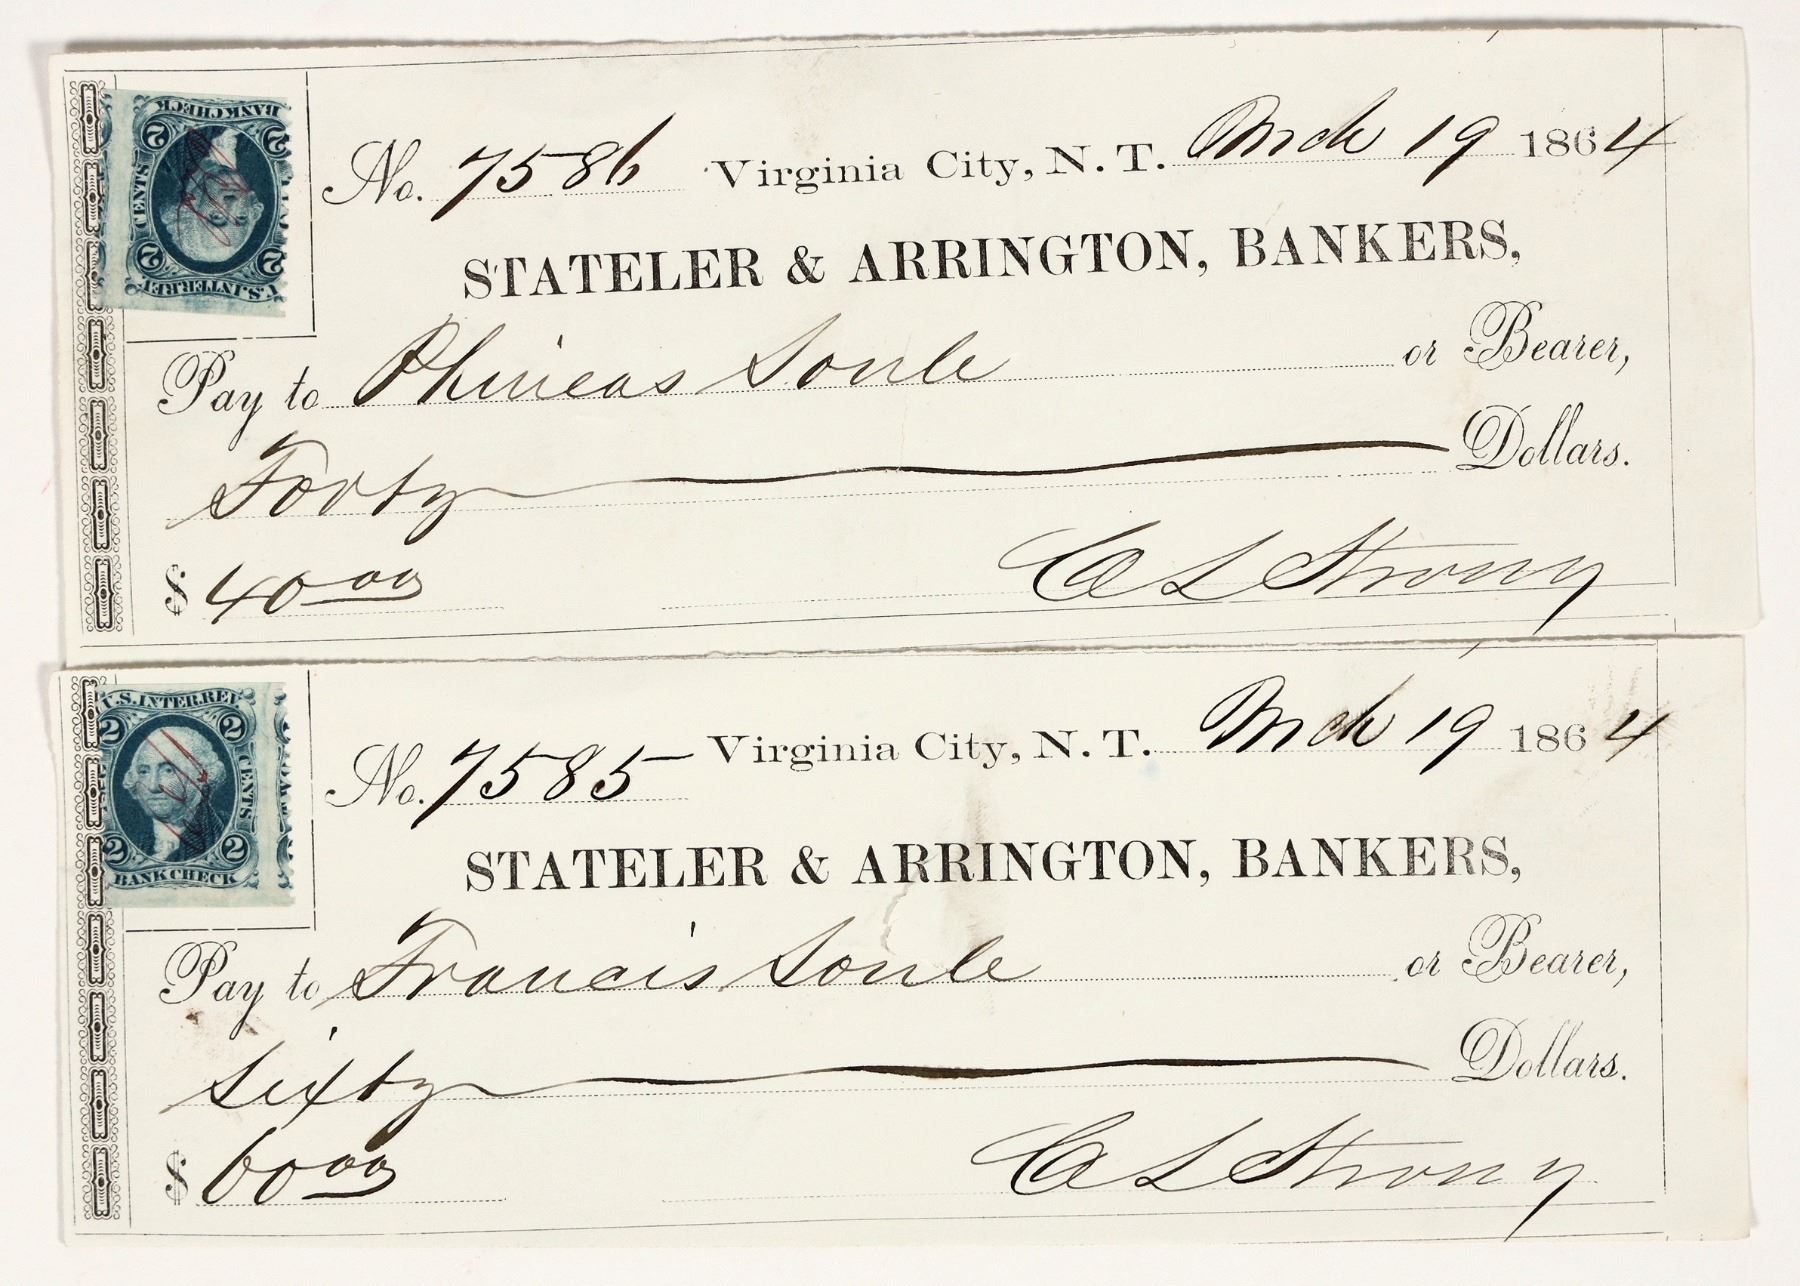 BANK CHECK
2 2
CENTS
2 2
U.S. INTER. REV.
No. 7586 Virginia City, N. T. Mch 19 1864
STATELER & ARRINGTON, BANKERS,
Pay to Phineas Soule or Bearer,
Forty Dollars.
$ 40 00
C L Strong
U.S. INTER. REV.
2 2
CENTS
2 2
BANK CHECK
No. 7585 Virginia City, N. T. Mch 19 1864
STATELER & ARRINGTON, BANKERS,
Pay to Francis Soule or Bearer,
Sixty Dollars.
$ 60 00
C L Strong